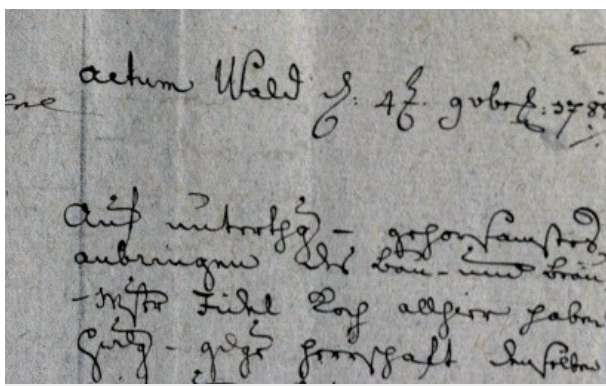 actum Wald d: 4t. 9vbr: 178
Auf unterthg - gehorsamstes
anbringen des Bau- und Bräu
-Mster Fidel Koch allhier haben
Gndg - herrschaft demselben